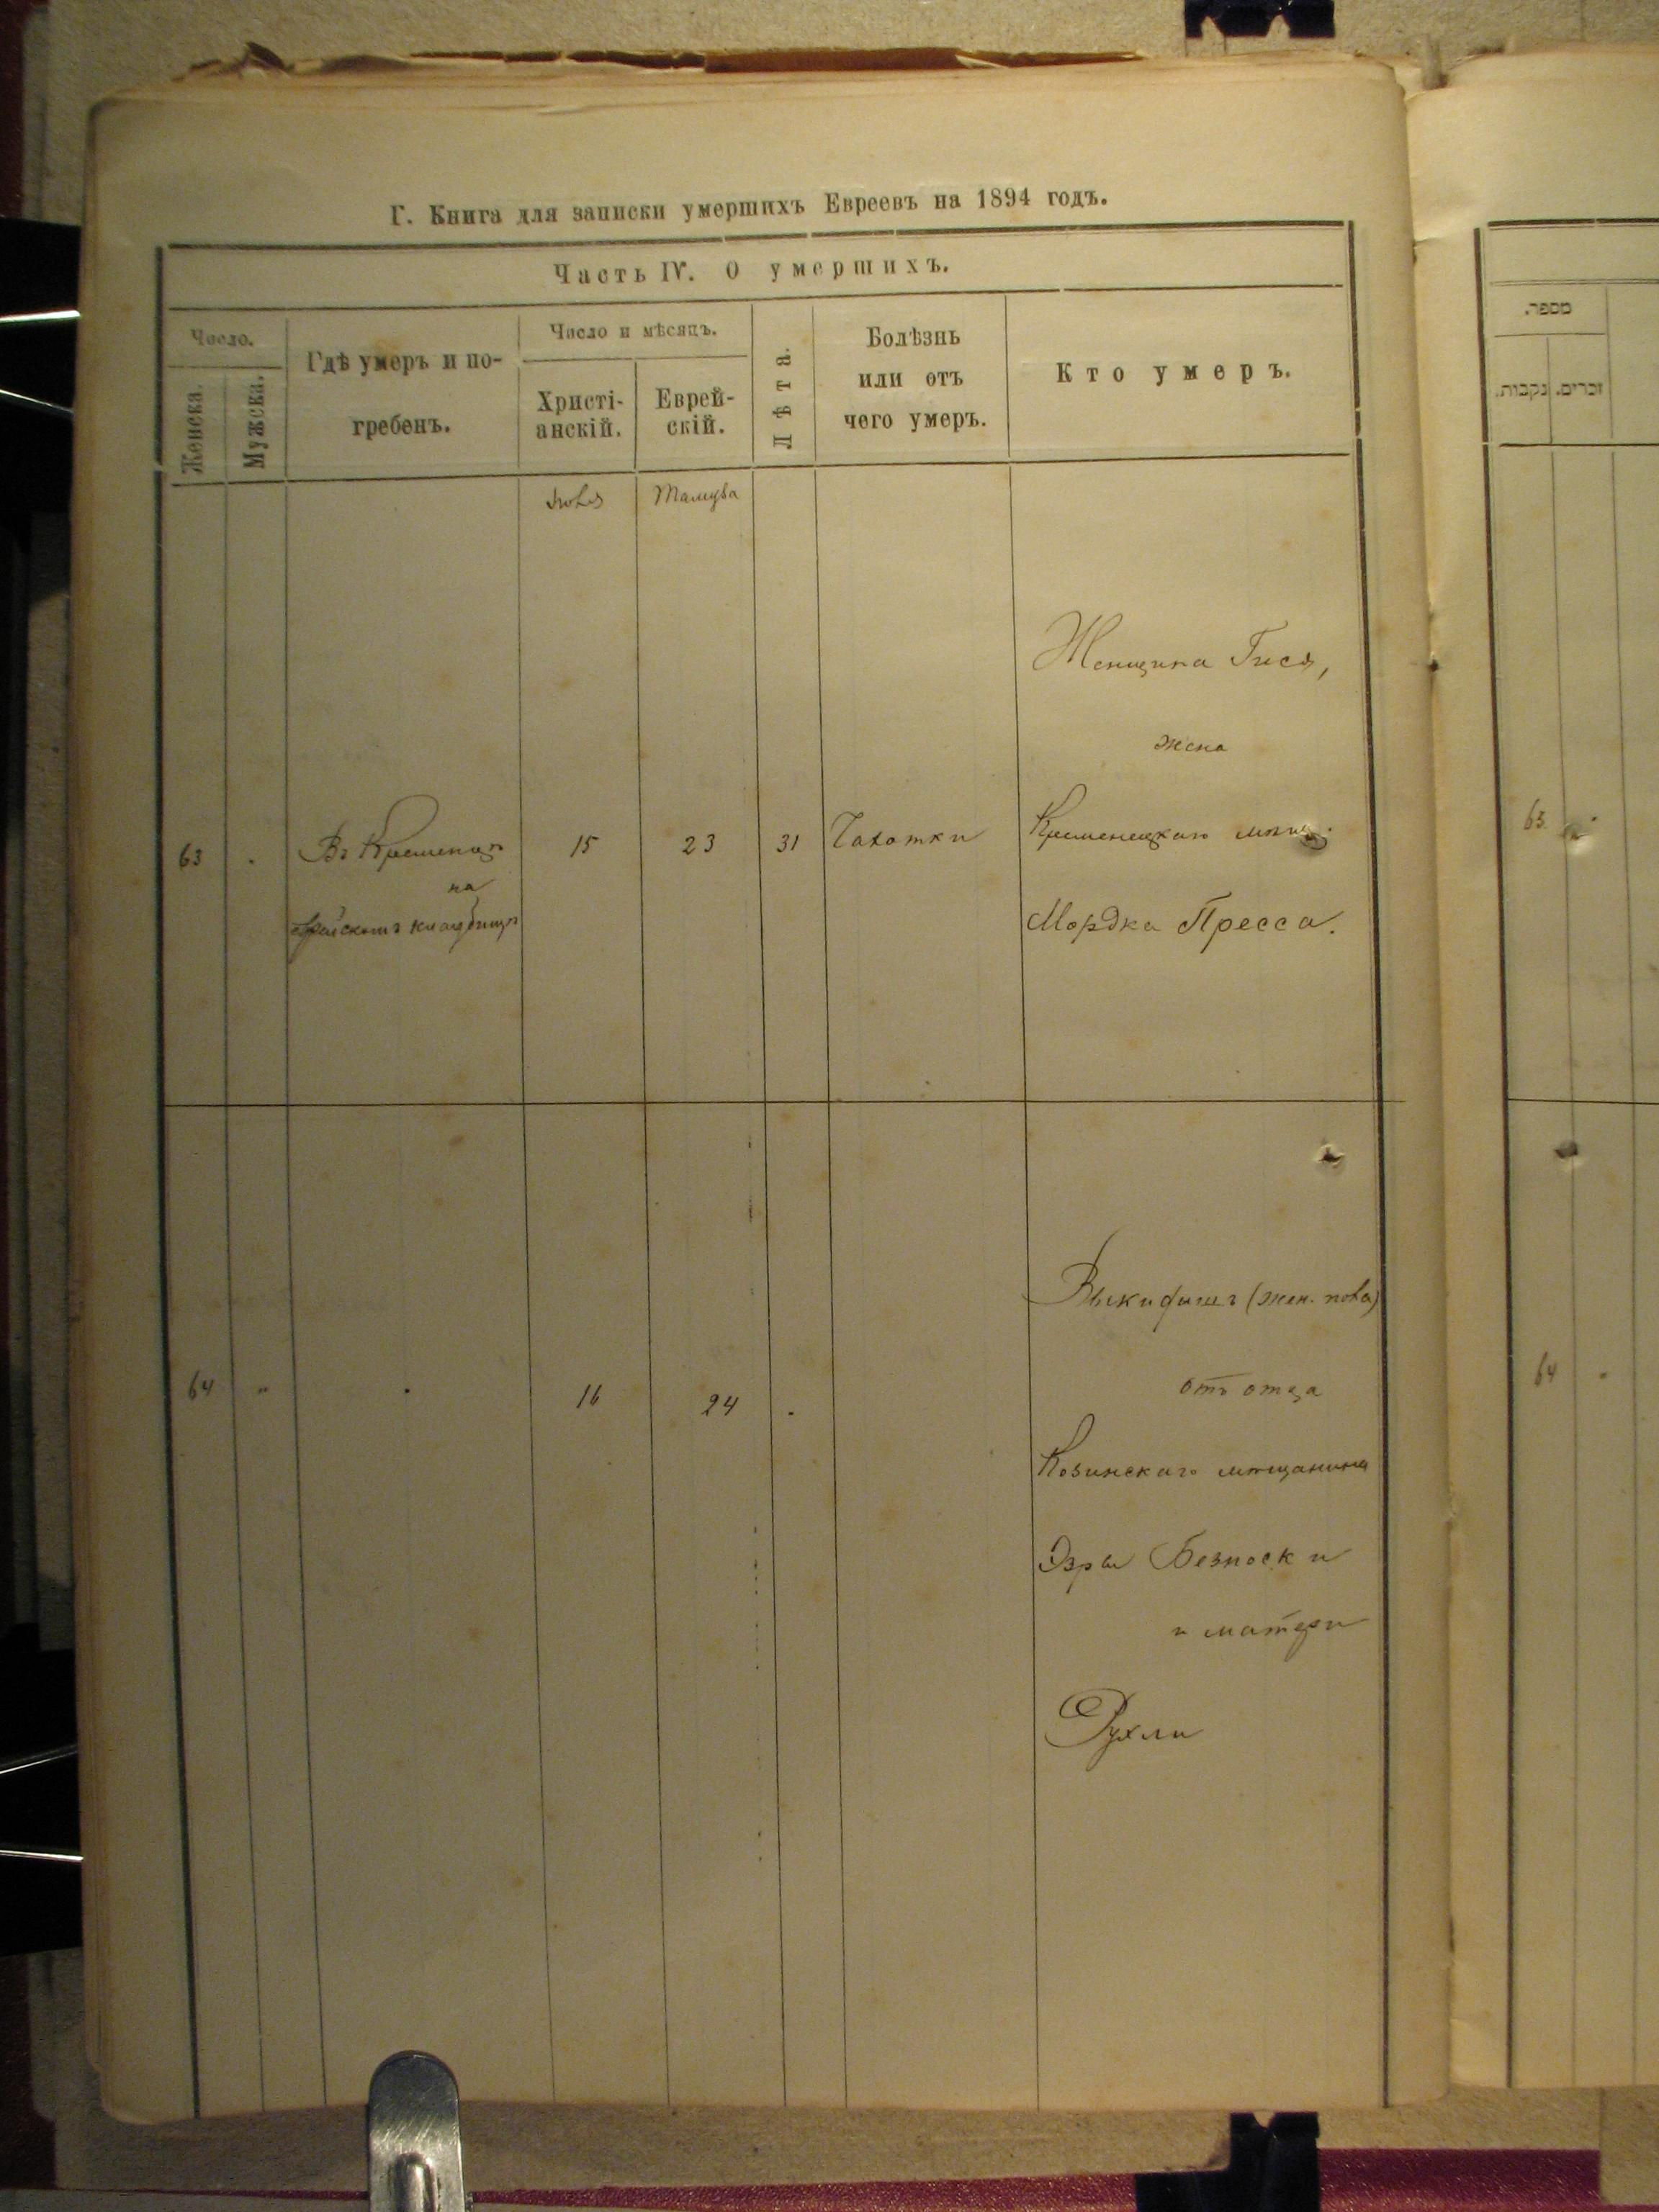 Г. Книга для записки умершихъ Евреевъ на 1894 годъ.
Часть IV. О умершихъ.
Число.
Женска.
Мужска.
Гдѣ умеръ и по-
гребенъ.
Число и мѣсяцъ.
Христі-
анскій.
Еврей-
скій.
Лѣта.
Болѣзнь
или отъ
чего умеръ.
Кто умеръ.
Іюля
Тамуза
63
Въ Кременцѣ
на
еврейскомъ кладбищѣ
15
23
31
Чахотки
Женщина Гися,
жена
Кременецкаго мѣщ.
Мордка Пресса.
64
"
16
24
Выкидышъ (жен. пола)
отъ отца
Козинскаго мѣщанина
Эзры Безноски
и матери
Рухли
מספר.
זכרים.
נקבות.
63
64